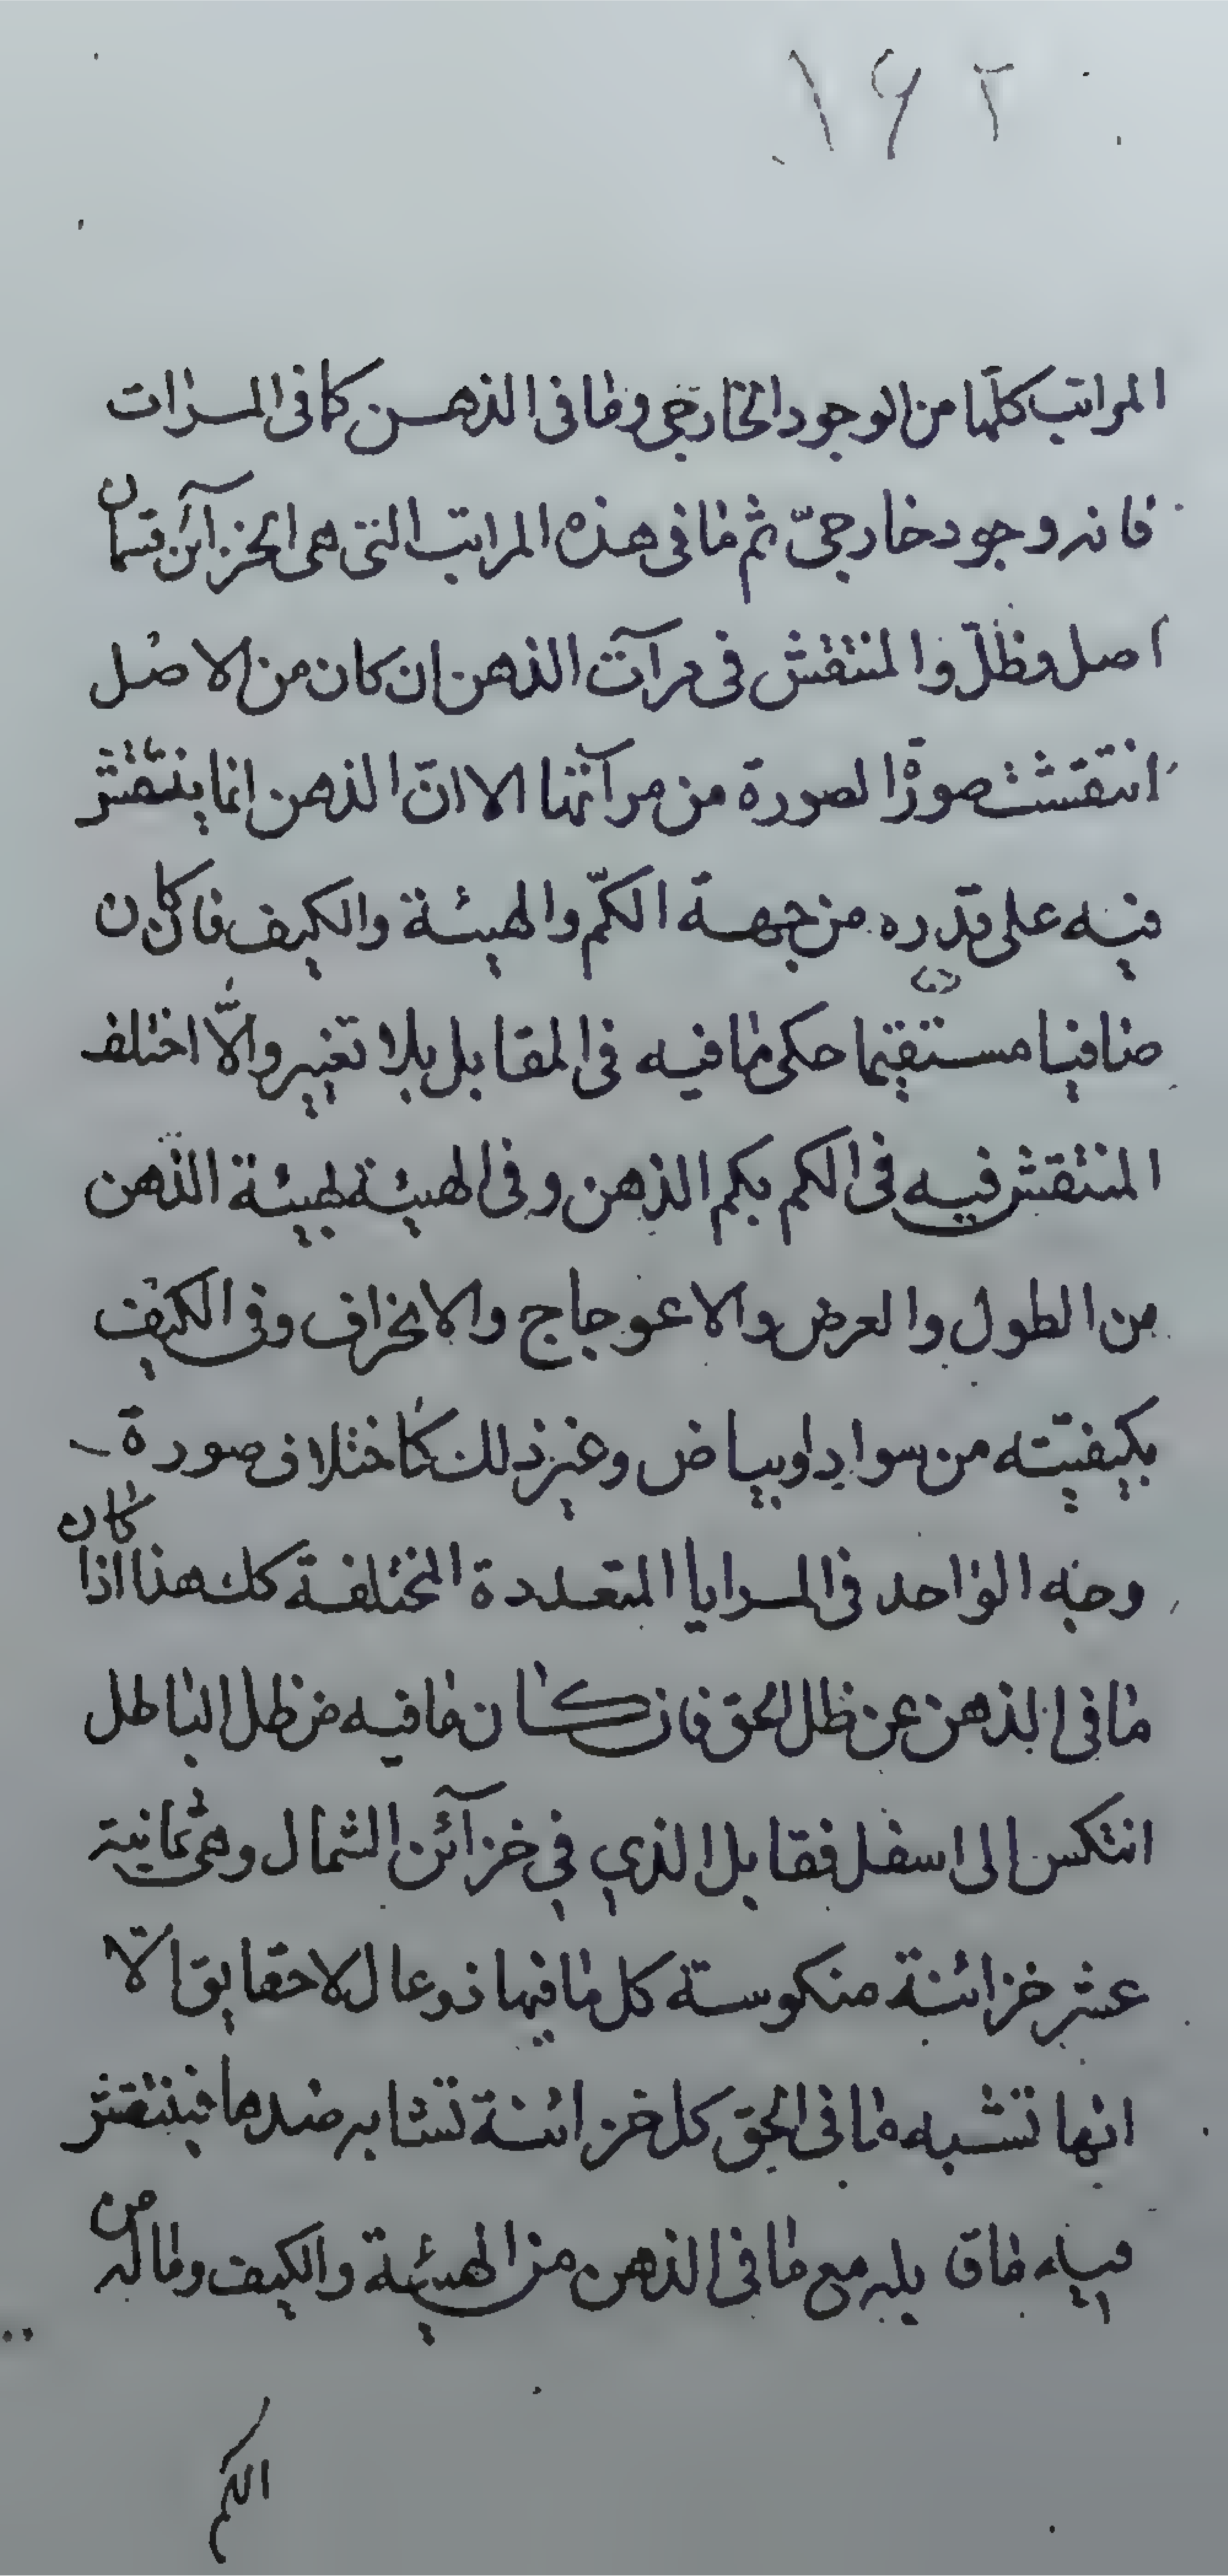 ١٩٢
المراتب كلّها من الوجود الخارجى وما فى الذهن كما فى المرات
فانه وجود خارجىّ ثم ما فى هذه المراتب التى هى الخزآئن قسمان
اصل وظلّ والمنتقش فى مرآت الذهن ان كان من الاصل
انتقشت صورة الصورة من مرآتها الا انّ الذهن انما ينتقش
فيه على قدره من جهة الكمّ والهيئة والكيف فان كان
صافيا مستقيما حكى ما فيه فى المقابل بلا تغيير والّا اختلف
المنتقش فيه فى الكم بكم الذهن وفى الهيئة بهيئة الذهن
من الطول والعرض والاعوجاج والانحراف وفى الكيف
بكيفيّته من سواد او بياض وغير ذلك كاختلاف صورة
وجه الواحد فى المرايا المتعددة المختلفة كل هذا اذا كان
ما فى الذهن عن ظل الحق فان كان ما فيه من ظل الباطل
انتكس الى اسفل فقابل الذي في خزآئن الشمال وهى ثمانية
عشر خزائنة منكوسة كل ما فيها فروعا لا حقايق الّا
انها تشبه ما فى الحق كل خزائنة تشابه ضدها فينتقش
فيه ما قابله مع ما فى الذهن من الهيئة والكيف وما له من
الكم